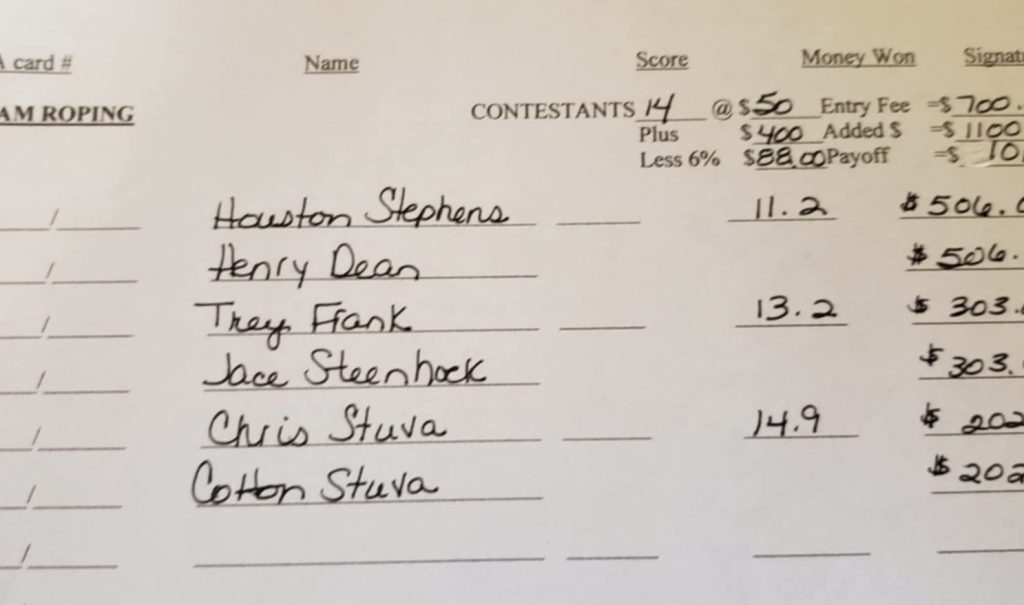 A card # Name Score Money Won Signatu
AM ROPING CONTESTANTS 14 @ $50 Entry Fee =$ 700.
Plus $400 Added $ =$ 1100
Less 6% $88.00 Payoff =$ 101
/ Houston Stephens 11.2 $506.0
/ Henry Dean $506.
/ Trey Frank 13.2 $ 303.
/ Jace Steenhoek $303.
/ Chris Stuva 14.9 $ 202
/ Cotton Stuva $202
/